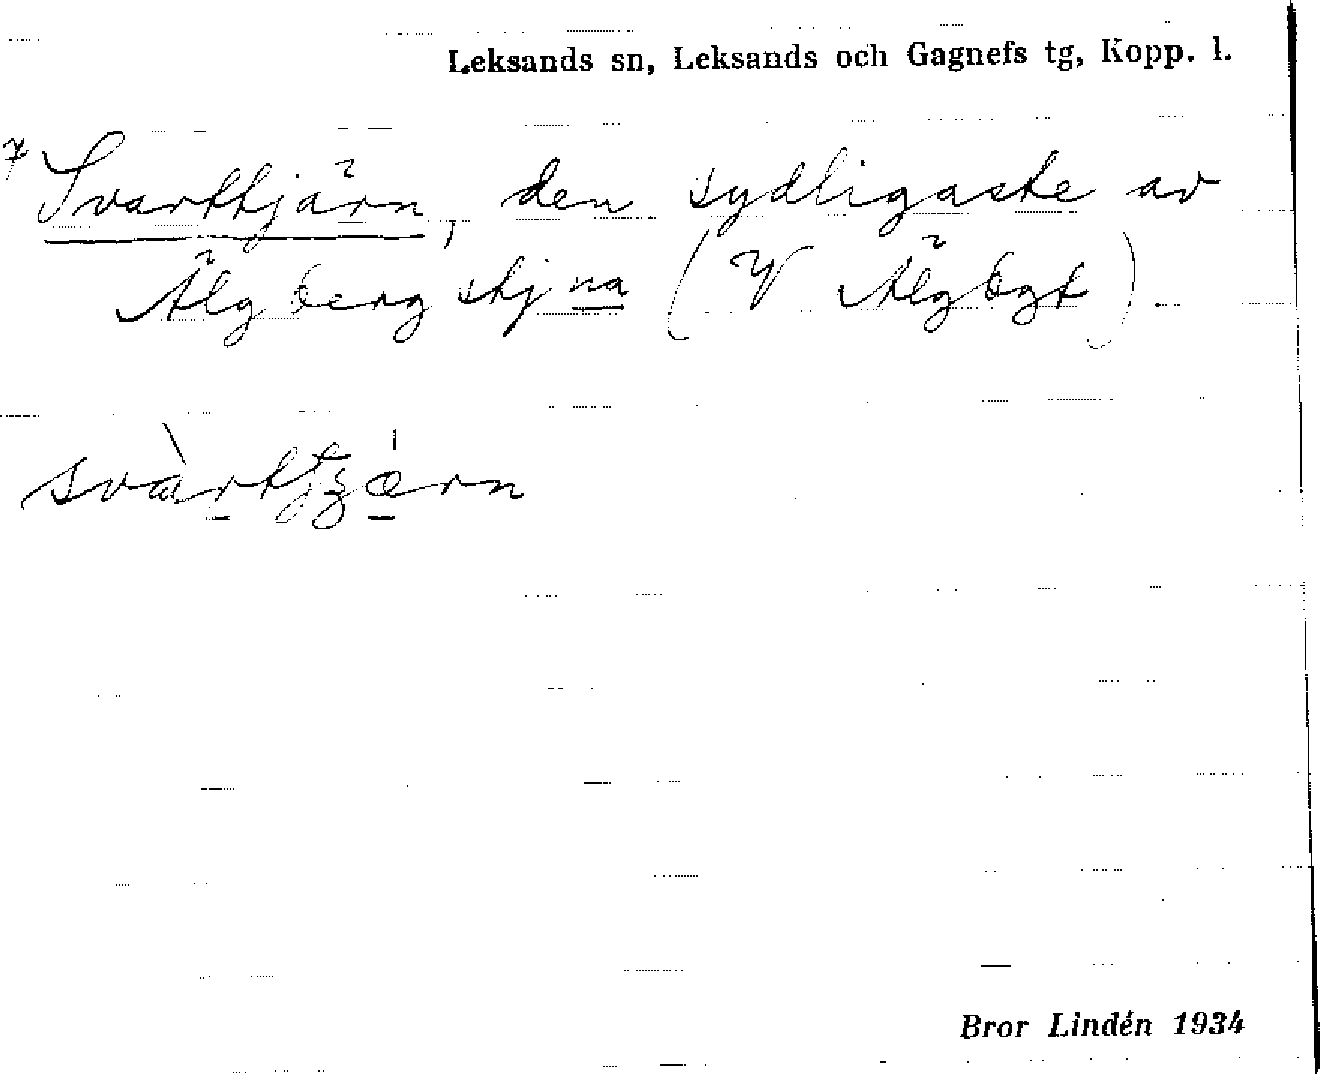 Leksands sn, Leksands och Gagnefs tg, Kopp. l.
Svarttjärn, den sydligaste av
Älgbergstjna (V Älgbgt)
Bror Lindén 1934